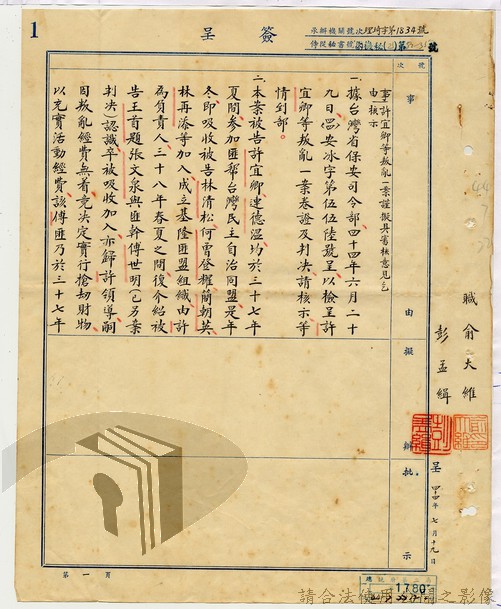 1
簽
呈
承辦機關號次理琦字第1834號
號次
事由
擬辦
批示
事由：許宜卿等叛亂一案謹擬具審核意見乞
核示
一、據台灣省保安司令部四十四年六月二十
九日(四四)安冰字第伍伍陸號呈以檢呈許
宜卿等叛亂一案卷證及判決請核示等
情到部。
二、本案被告許宜卿連德溫均於三十七年
夏間參加匪幫台灣民主自治同盟是年
冬即吸收被告林清松何曾登耀簡朝英
林再添等加入成立基隆匪盟組織由許
為負責人三十八年春夏之間復介紹被
告王首題張文泉與匪幹傅世明(已另案
判決)認識率被吸收加入亦歸許領導嗣
因叛亂經費無着竞決定實行搶劫財物
以充實活動經費該傅匪乃於三十七年
職
俞大維
彭孟緝
呈
四十四年七月十九日
第一頁
1780
請合法使用公開之影像